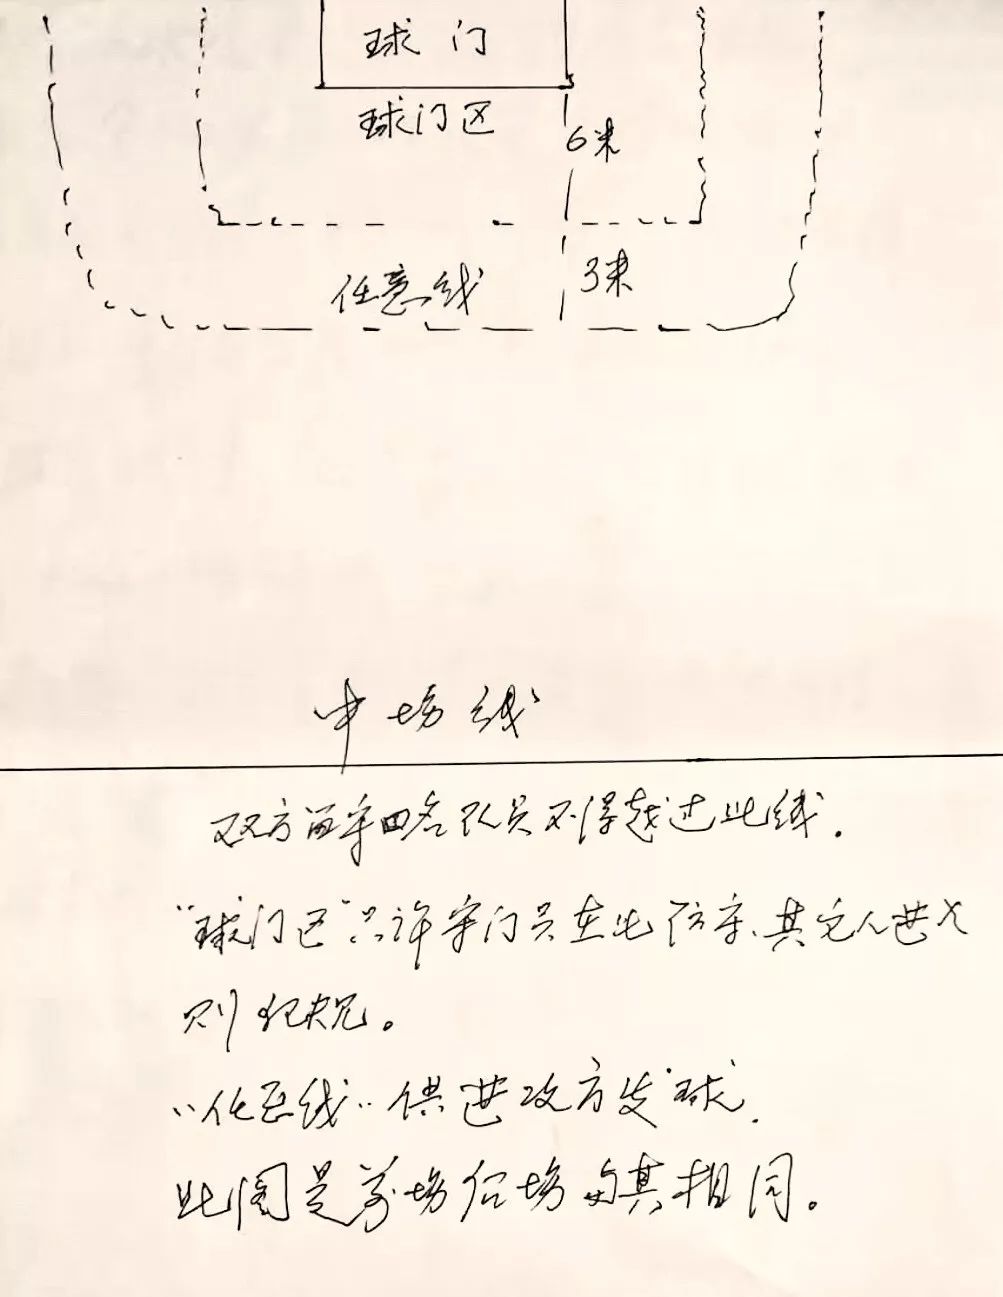 球门
球门区
6米
任意线
3米
中场线
双方留守四名队员不得越过此线.
"球门区"只许守门员在此防守、其它人进入
则犯规。
"任意线"供进攻方发球.
此图是前场后场与其相同。